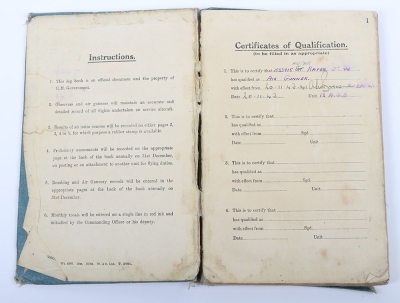 Instructions.
1. This log book is an official document and the property of H.M. Government.
2. Observers and air gunners will maintain an accurate and detailed record of all flights undertaken on service aircraft.
3. Results of air tests will be recorded on other pages 2, 3, 4 &amp; 5, for which purpose a rubber stamp is available.
4. Proficiency assessments will be recorded on the appropriate page at the back of the book annually on 31st December, on posting or on attachment to another unit for flying duties.
5. Bombing and Air Gunnery records will be entered in the appropriate pages at the back of the book annually on 31st December.
6. Monthly totals will be entered on a single line in red ink and initialled by the Commanding Officer or his deputy.
1
Certificates of Qualification.
(to be filled in as appropriate)
1. This is to certify that
has qualified as Air Gunner
with effect from 20.11.42 Sgd.
Date 20.11.42 Unit
2. This is to certify that
has qualified as
with effect from Sgd.
Date Unit
3. This is to certify that
has qualified as
with effect from Sgd.
Date Unit
4. This is to certify that
has qualified as
with effect from Sgd.
Date Unit